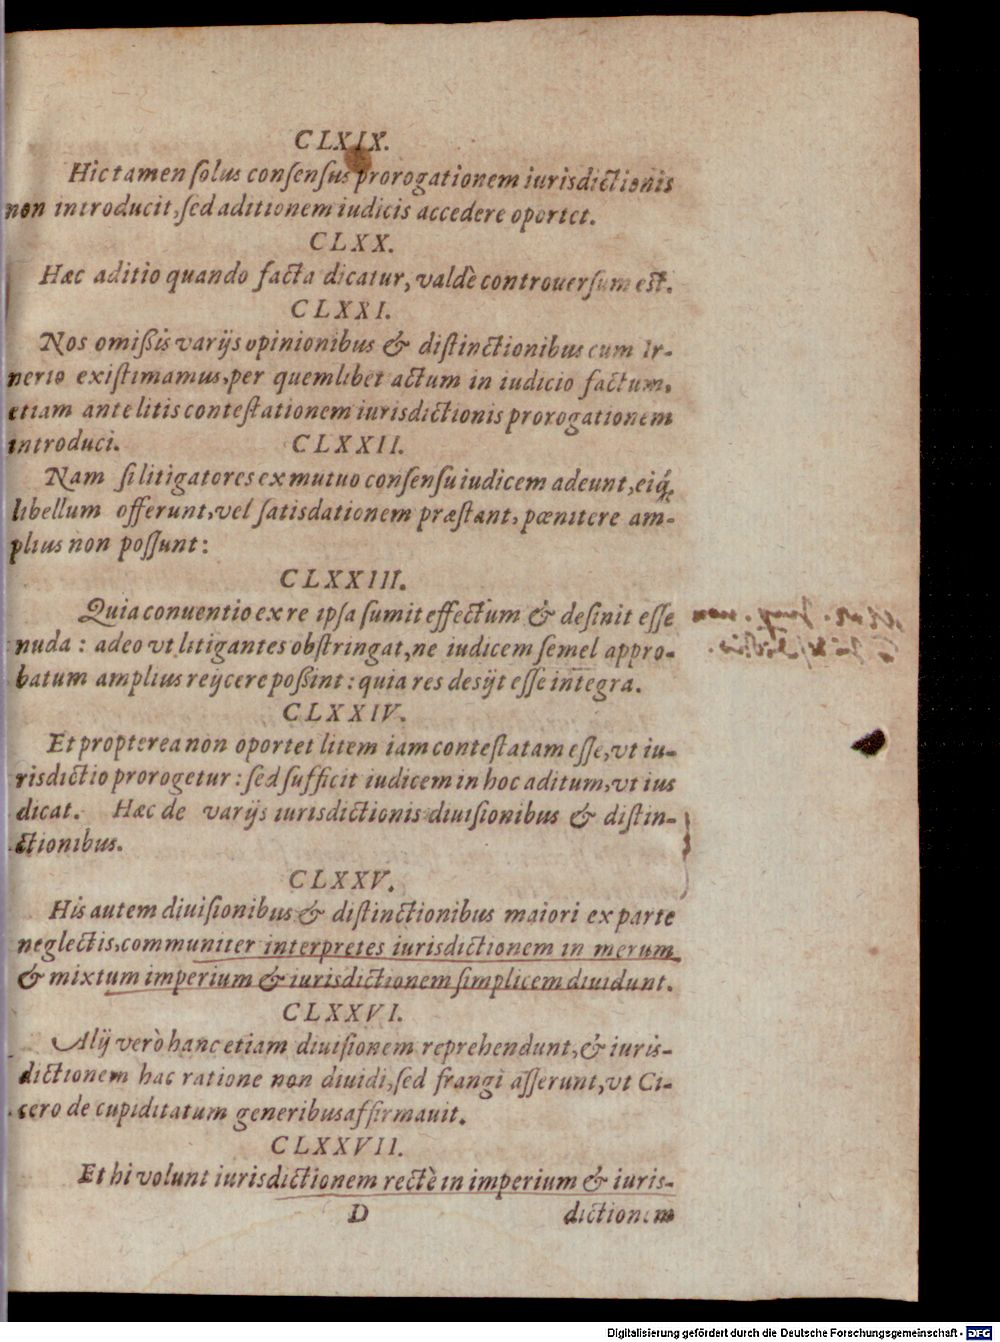 CLXIX.
Hic tamen ſolus conſenſus prorogationem iurisdictionis
non introducit, ſed aditionem iudicis accedere oportet.
CLXX.
Hæc aditio quando facta dicatur, valdè controuerſum est.
CLXXI.
Nos omißis varijs opinionibus & diſtinctionibus cum Ir-
nerio exiſtimamus, per quemlibet actum in iudicio factum,
etiam ante litis conteſtationem iurisdictionis prorogationem
introduci. CLXXII.
Nam ſi litigatores ex mutuo conſenſu iudicem adeunt, eiq́;
libellum offerunt, vel ſatisdationem præſtant, pœnitere am-
plius non poſſunt:
CLXXIII.
Quia conuentio ex re ipſa ſumit effectum & deſinit eſſe
nuda: adeo vt litigantes obſtringat, ne iudicem ſemel appro-
batum amplius reijcere poßint: quia res desijt eſſe integra.
CLXXIV.
Et propterea non oportet litem iam conteſtatam eſſe, vt iu-
risdictio prorogetur: ſed ſufficit iudicem in hoc aditum, vt ius
dicat. Hæc de varijs iurisdictionis diuiſionibus & diſtin-
ctionibus.
CLXXV.
His autem diuiſionibus & diſtinctionibus maiori ex parte
neglectis, communiter interpretes iurisdictionem in merum
& mixtum imperium & iurisdictionem ſimplicem diuidunt.
CLXXVI.
Alij verò hanc etiam diuiſionem reprehendunt, & iuris-
dictionem hac ratione non diuidi, ſed frangi aſſerunt, vt Ci-
cero de cupiditatum generibus affirmauit.
CLXXVII.
Et hi volunt iurisdictionem rectè in imperium & iuris-
D dictionem
Digitalisierung gefördert durch die Deutsche Forschungsgemeinschaft - DFG